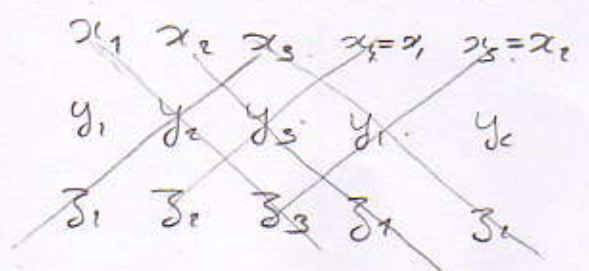 x₁ x₂ x₃ x₄=x₁ x₅=x₂
y₁ y₂ y₃ y₁ y₂
z₁ z₂ z₃ z₁ z₂